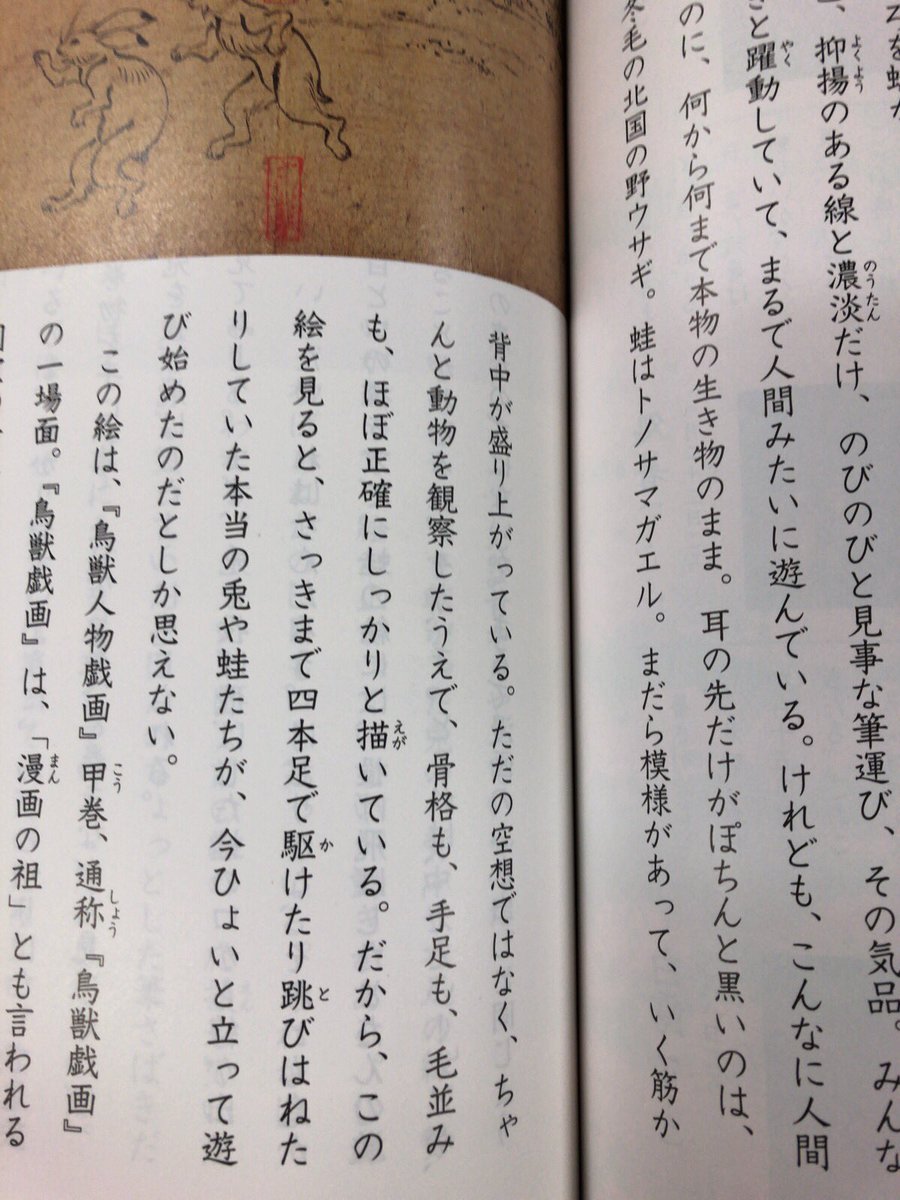 抑揚のある線と濃淡だけ、のびのびと見事な筆運び、その気品。みんな
躍動していて、まるで人間みたいに遊んでいる。けれども、こんなに人間
のに、何から何まで本物の生き物のまま。耳の先だけがぽちんと黒いのは、
冬毛の北国の野ウサギ。蛙はトノサマガエル。まだら模様があって、いく筋か
背中が盛り上がっている。ただの空想ではなく、ちゃ
んと動物を観察したうえで、骨格も、手足も、毛並み
も、ほぼ正確にしっかりと描いている。だから、この
絵を見ると、さっきまで四本足で駆けたり跳びはねた
りしていた本当の兎や蛙たちが、今ひょいと立って遊
び始めたのだとしか思えない。
この絵は、『鳥獣人物戯画』甲巻、通称『鳥獣戯画』
の一場面。『鳥獣戯画』は、「漫画の祖」とも言われる